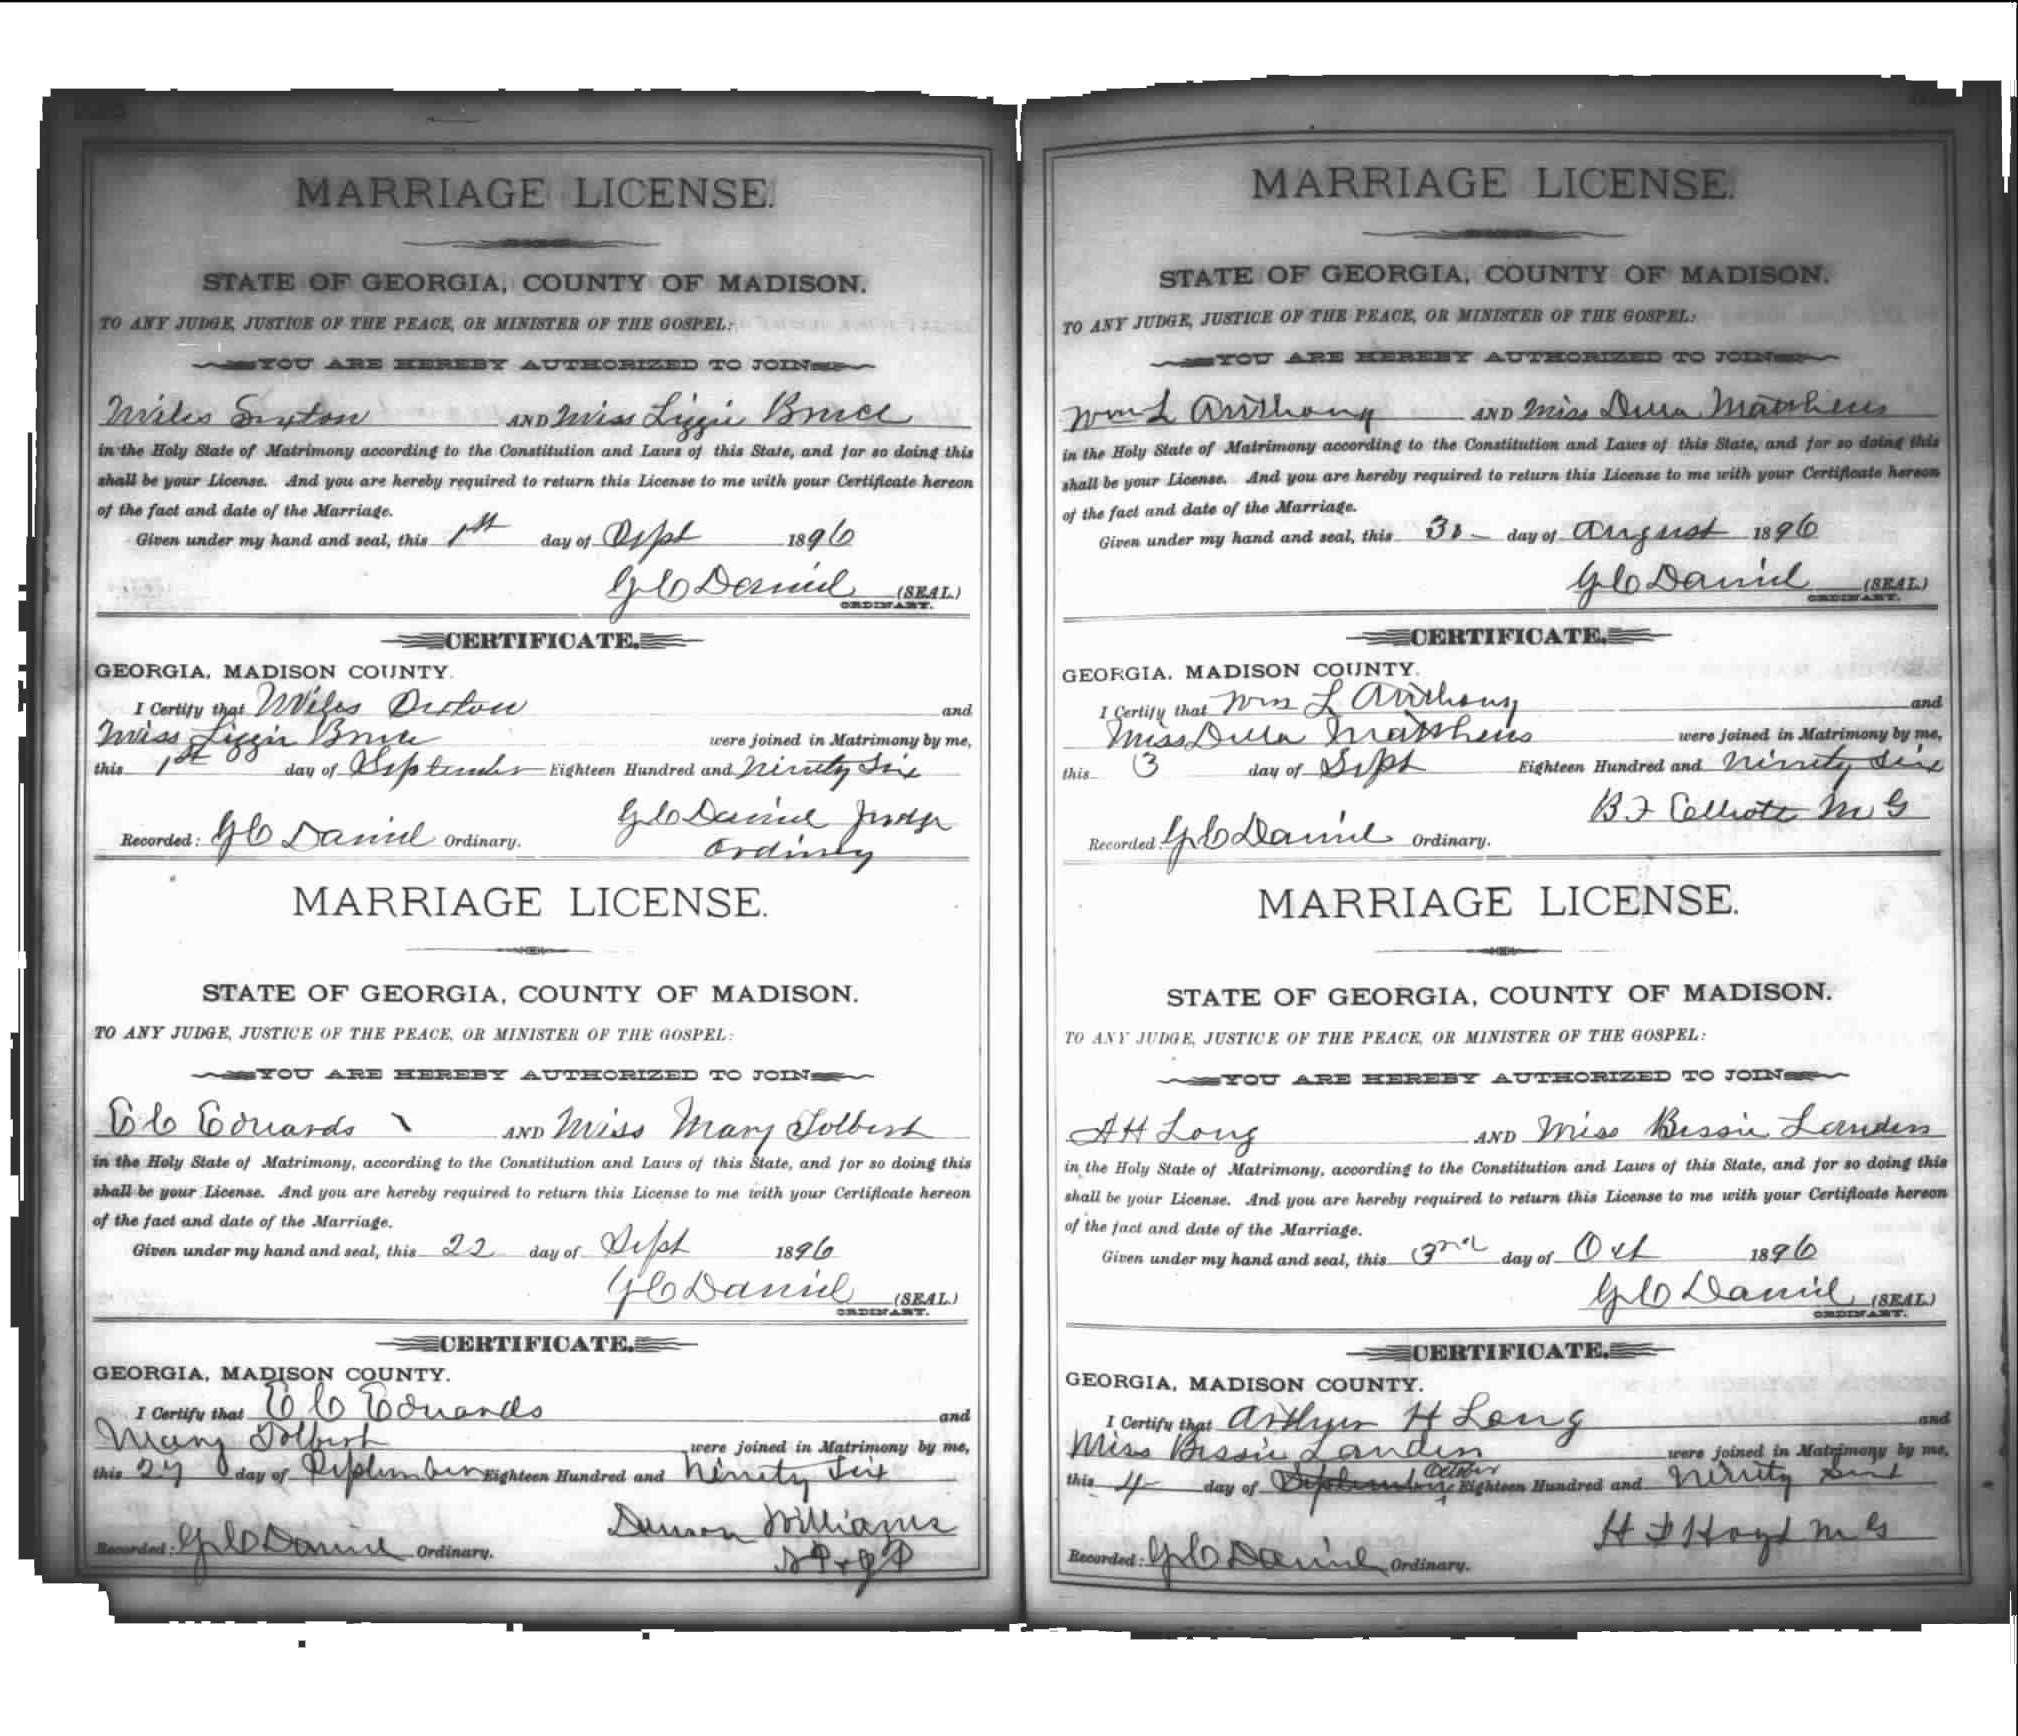 MARRIAGE LICENSE.
STATE OF GEORGIA, COUNTY OF MADISON.
TO ANY JUDGE, JUSTICE OF THE PEACE, OR MINISTER OF THE GOSPEL:
YOU ARE HEREBY AUTHORIZED TO JOIN
Miles Sexton AND Miss Lizzie Bruce
in the Holy State of Matrimony according to the Constitution and Laws of this State, and for so doing this
shall be your License. And you are hereby required to return this License to me with your Certificate hereon
of the fact and date of the Marriage.
Given under my hand and seal, this 1st day of Sept 1896
G C Daniel (SEAL.)
ORDINARY.
CERTIFICATE.
GEORGIA, MADISON COUNTY.
I Certify that Miles Sexton and
Miss Lizzie Bruce were joined in Matrimony by me,
this 1st day of September Eighteen Hundred and Ninety Six
G C Daniel Judge
Recorded: G C Daniel Ordinary. Ordinary
MARRIAGE LICENSE.
STATE OF GEORGIA, COUNTY OF MADISON.
TO ANY JUDGE, JUSTICE OF THE PEACE, OR MINISTER OF THE GOSPEL:
YOU ARE HEREBY AUTHORIZED TO JOIN
E C Edwards AND Miss Mary Tolbert
in the Holy State of Matrimony, according to the Constitution and Laws of this State, and for so doing this
shall be your License. And you are hereby required to return this License to me with your Certificate hereon
of the fact and date of the Marriage.
Given under my hand and seal, this 22 day of Sept 1896
G C Daniel (SEAL.)
ORDINARY.
CERTIFICATE.
GEORGIA, MADISON COUNTY.
I Certify that E C Edwards and
Mary Tolbert were joined in Matrimony by me,
this 27 day of September Eighteen Hundred and Ninety Six
Williams
Recorded: G C Daniel Ordinary.
MARRIAGE LICENSE.
STATE OF GEORGIA, COUNTY OF MADISON.
TO ANY JUDGE, JUSTICE OF THE PEACE, OR MINISTER OF THE GOSPEL:
YOU ARE HEREBY AUTHORIZED TO JOIN
Wm L Anthony AND Miss Della Matthews
in the Holy State of Matrimony according to the Constitution and Laws of this State, and for so doing this
shall be your License. And you are hereby required to return this License to me with your Certificate hereon
of the fact and date of the Marriage.
Given under my hand and seal, this day of August 1896
G C Daniel (SEAL.)
ORDINARY.
CERTIFICATE.
GEORGIA, MADISON COUNTY.
I Certify that Wm L Anthony and
Miss Della Matthews were joined in Matrimony by me,
this 3 day of Sept Eighteen Hundred and Ninety Six
B F Elliott M G
Recorded: G C Daniel Ordinary.
MARRIAGE LICENSE.
STATE OF GEORGIA, COUNTY OF MADISON.
TO ANY JUDGE, JUSTICE OF THE PEACE, OR MINISTER OF THE GOSPEL:
YOU ARE HEREBY AUTHORIZED TO JOIN
A H Long AND Miss Bessie Landers
in the Holy State of Matrimony, according to the Constitution and Laws of this State, and for so doing this
shall be your License. And you are hereby required to return this License to me with your Certificate hereon
of the fact and date of the Marriage.
Given under my hand and seal, this 3rd day of Oct 1896
G C Daniel (SEAL.)
ORDINARY.
CERTIFICATE.
GEORGIA, MADISON COUNTY.
I Certify that Arthur H Long and
Miss Bessie Landers were joined in Matrimony by me,
this 4 day of September October Eighteen Hundred and Ninety
H F Hoyt M G
Recorded: G C Daniel Ordinary.